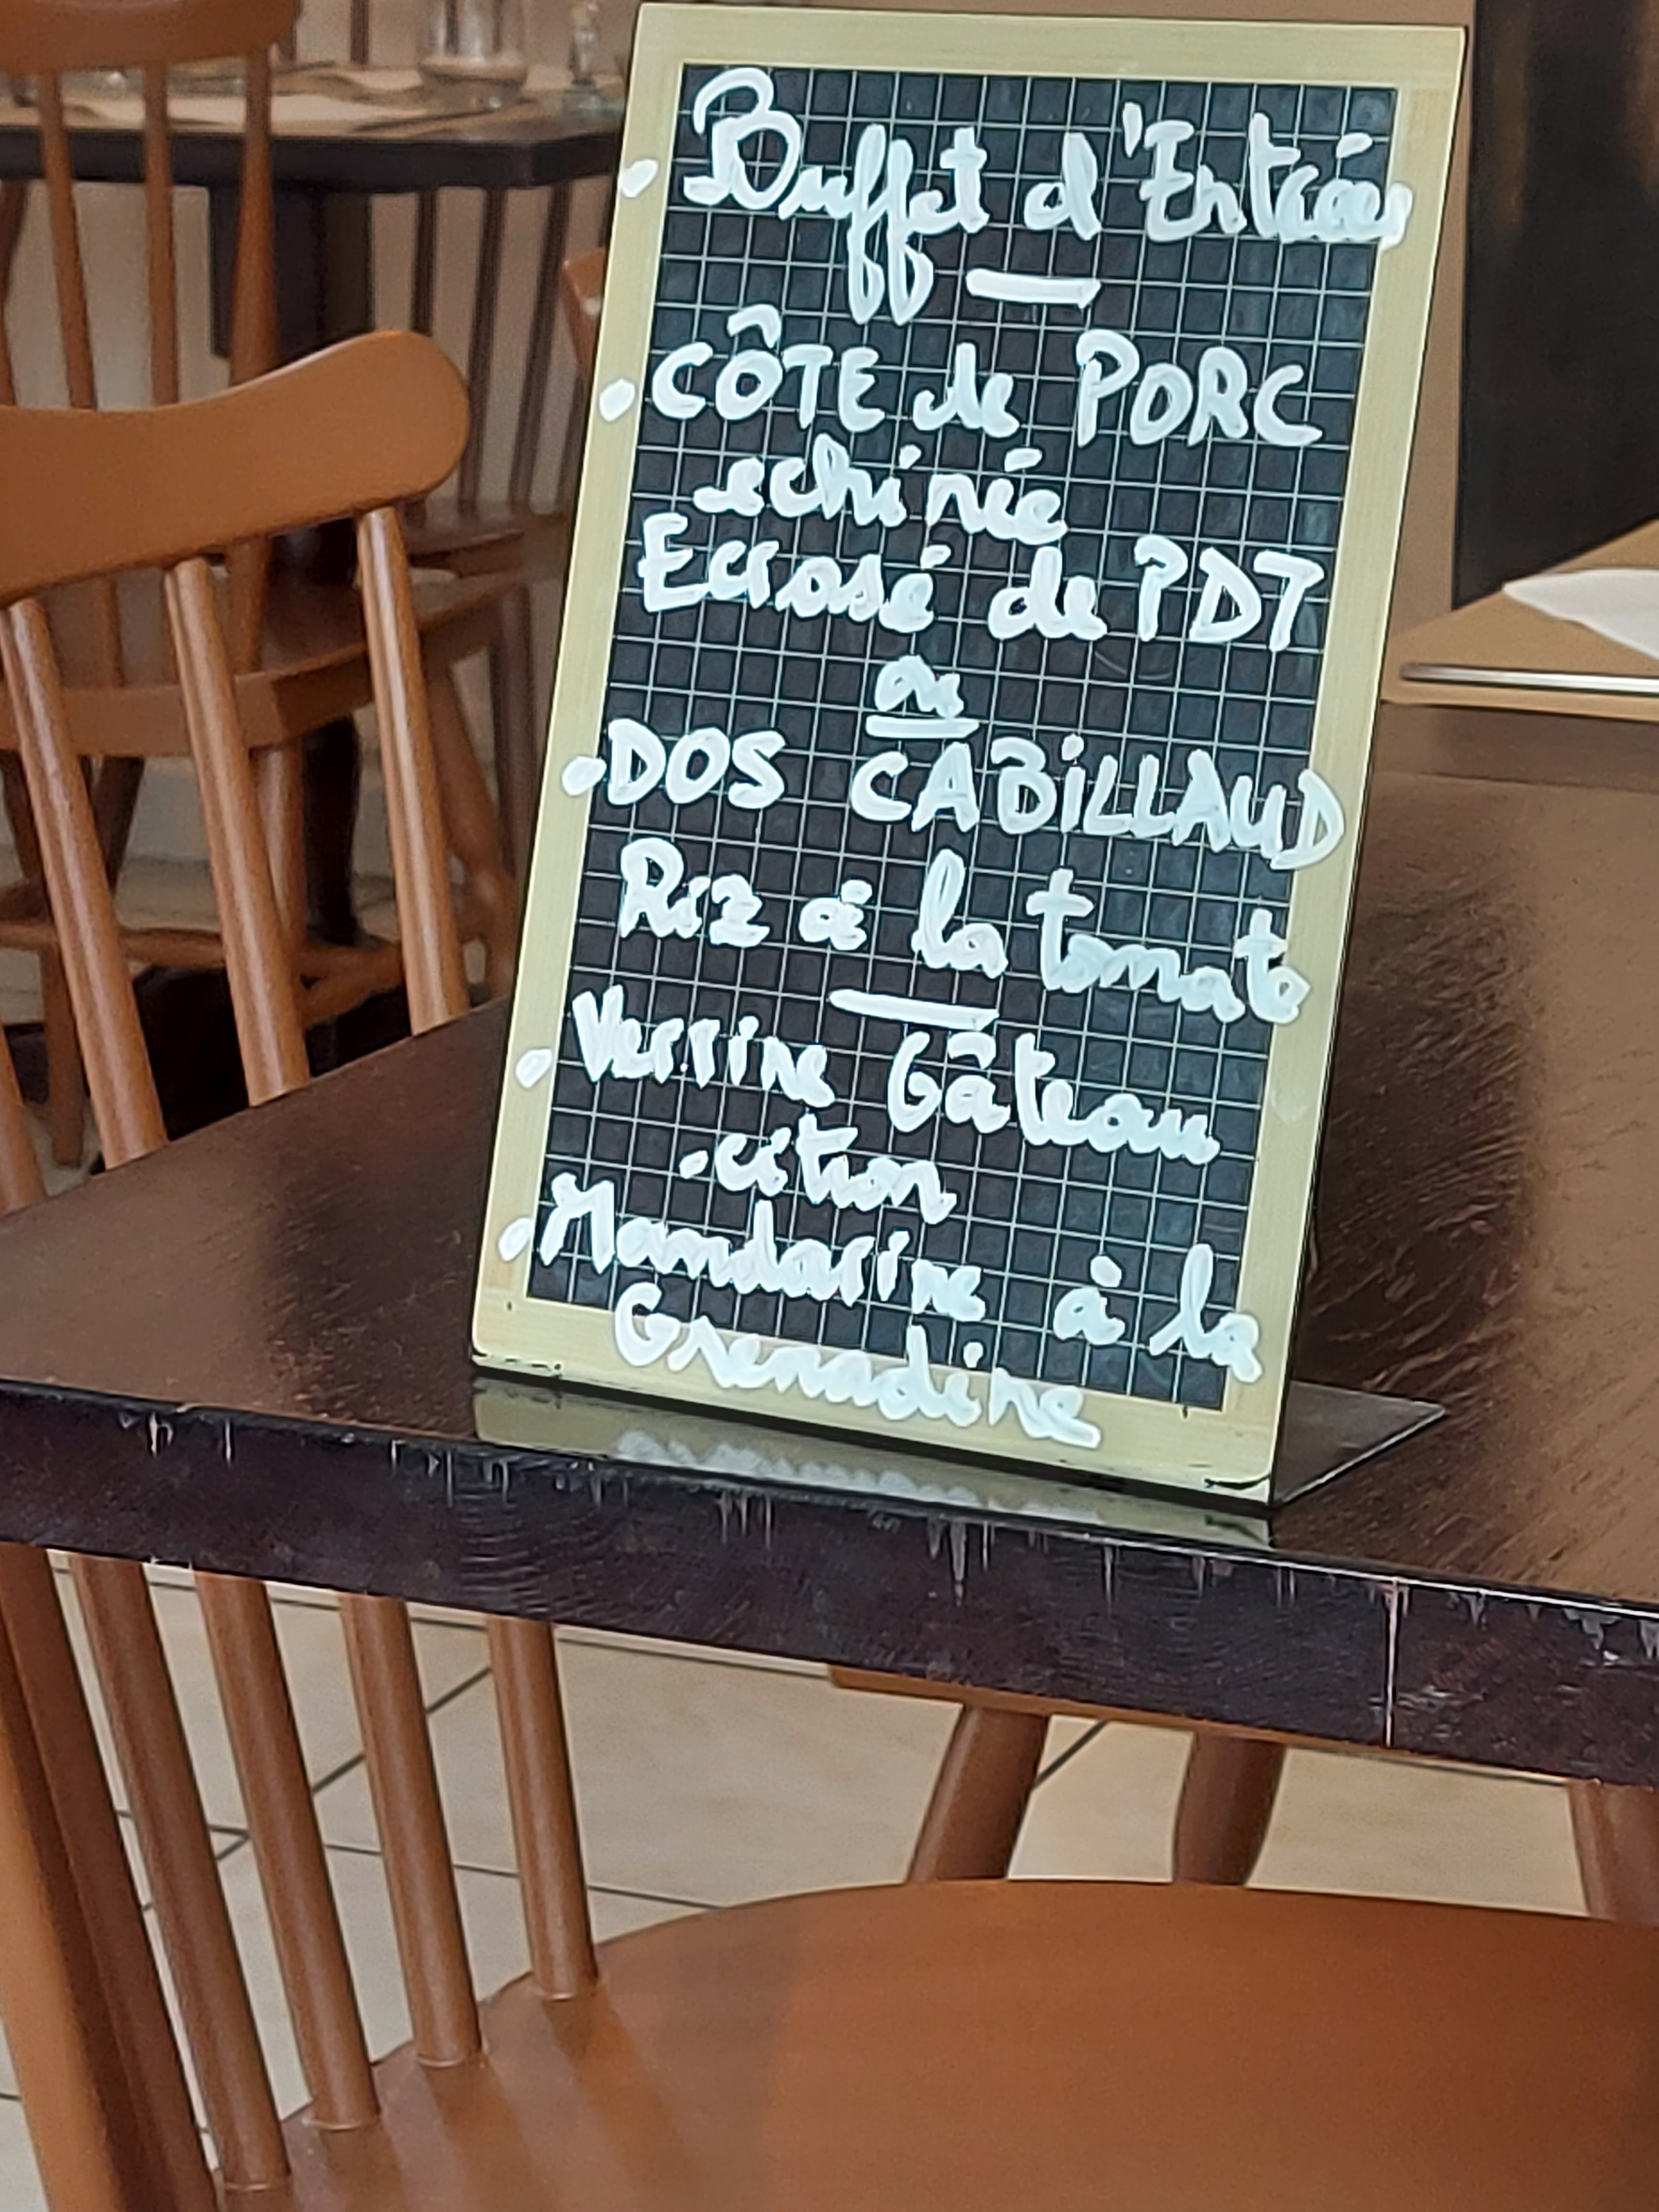 • Buffet d'Entrées
—
• CÔTE de PORC
echinée
Ecrasé de PDT
ou
• DOS CABiLLAUD
Riz à la tomate
—
• Verrine Gâteau
• citron
• Mandarine à la
Grenadine